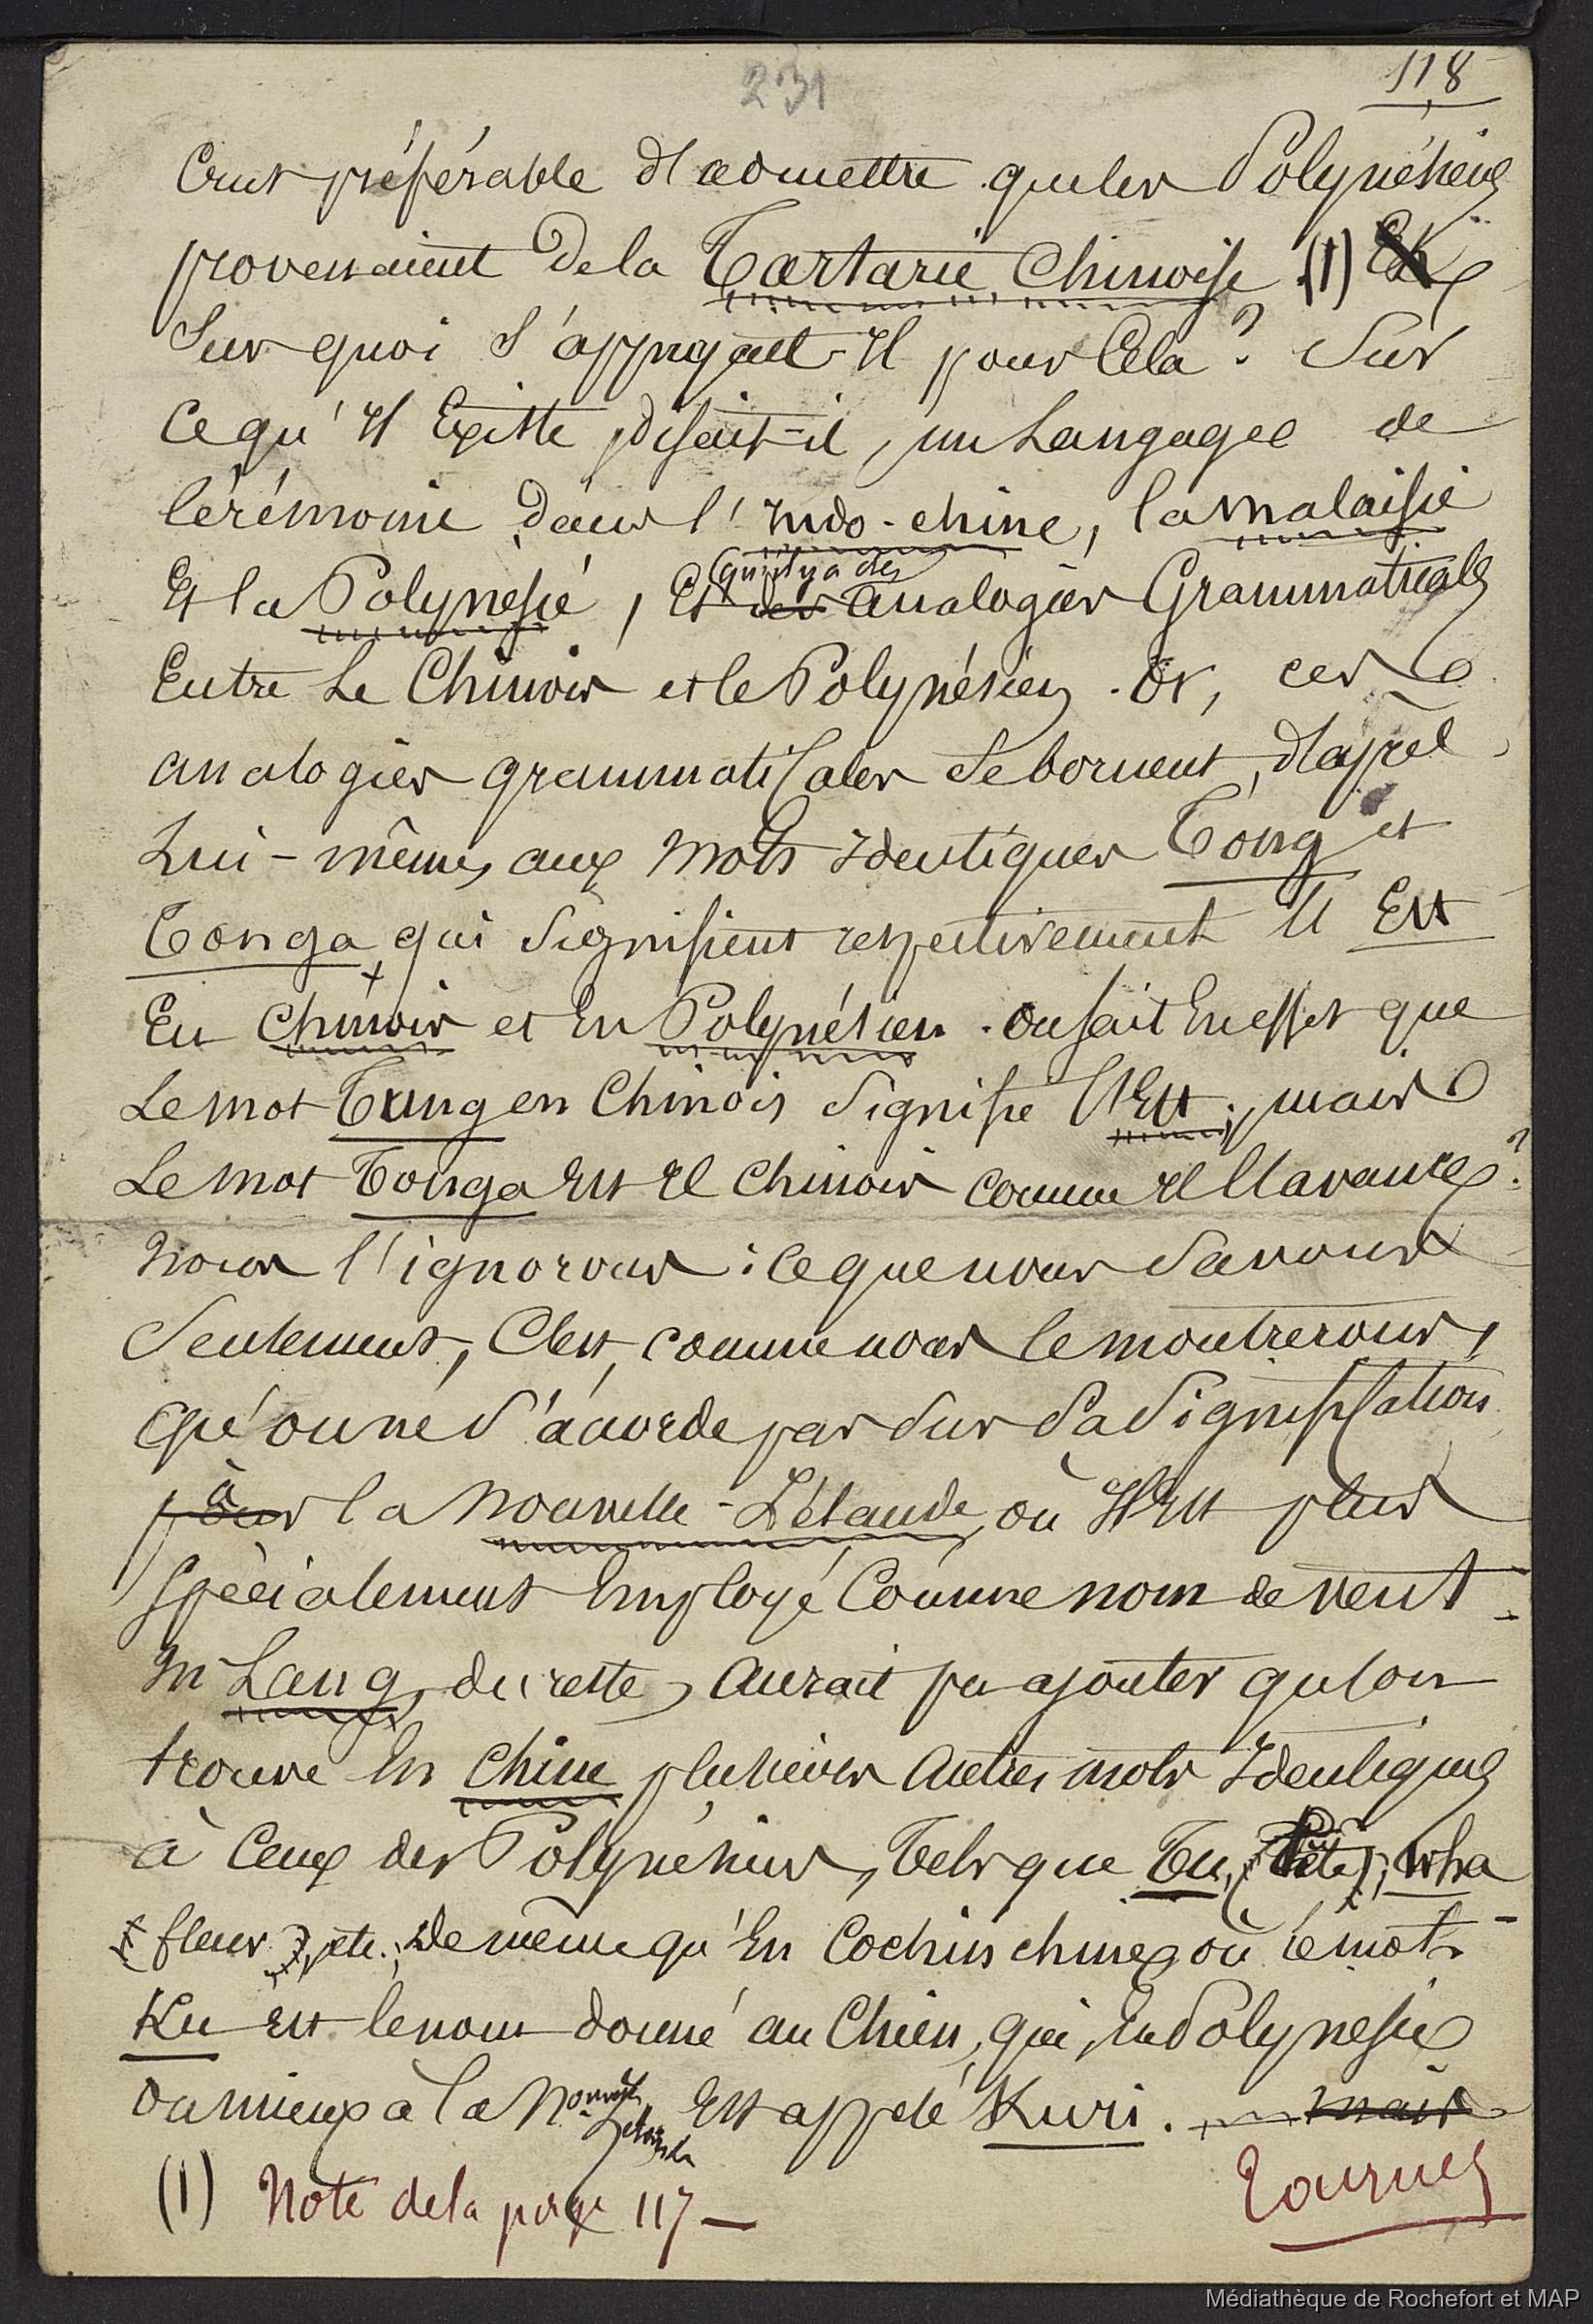 231
118
Crut préférable d'admettre que les Polynésiens
provenaient de la Tartarie Chinoise (1)
Sur quoi s'appuyait-Il pour Cela ? Sur
Ce qu'Il Existe, disait-il, un Langage de
Cérémonie dans l'Indo-chine, la malaisie
Et la Polynésie, Et des qu'il y a des analogies Grammaticales
Entre Le Chinois et le Polynésien. Or, ces
analogies grammaticales Se bornent, d'après
Lui-même, aux mots Identiques Tong et
Tonga, qui Signifient respectivement Est
En Chinois et En Polynésien. On sait En effet que
Le mot Tung en Chinois Signifie Est ; mais
Le mot Tonga Est Il Chinois comme Il l'avance ?
Nous l'ignorons : Ce que nous Savons
Seulement, C'est, comme nous le montrerons,
Qu'on ne S'accorde pas Sur Sa Signification
pour à la Nouvelle-Zélande, où Il Est plus
Spécialement Employé Comme nom de vent.
Mr Lang, du reste, Aurait pu ajouter qu'on
trouve En Chine plusieurs Autres mots Identiques
à Ceux des Polynésiens, Tels que Tu, (tête), wha
fleur, etc. ; De même qu'En Cochinchine, où le mot
Ku Est le nom donné au Chien, qui, En Polynésie
ou mieux à la Nouvelle Zélande Est appelé Kuri. mais
(1) Note de la page 117 —
Tournez
Médiathèque de Rochefort et MAP